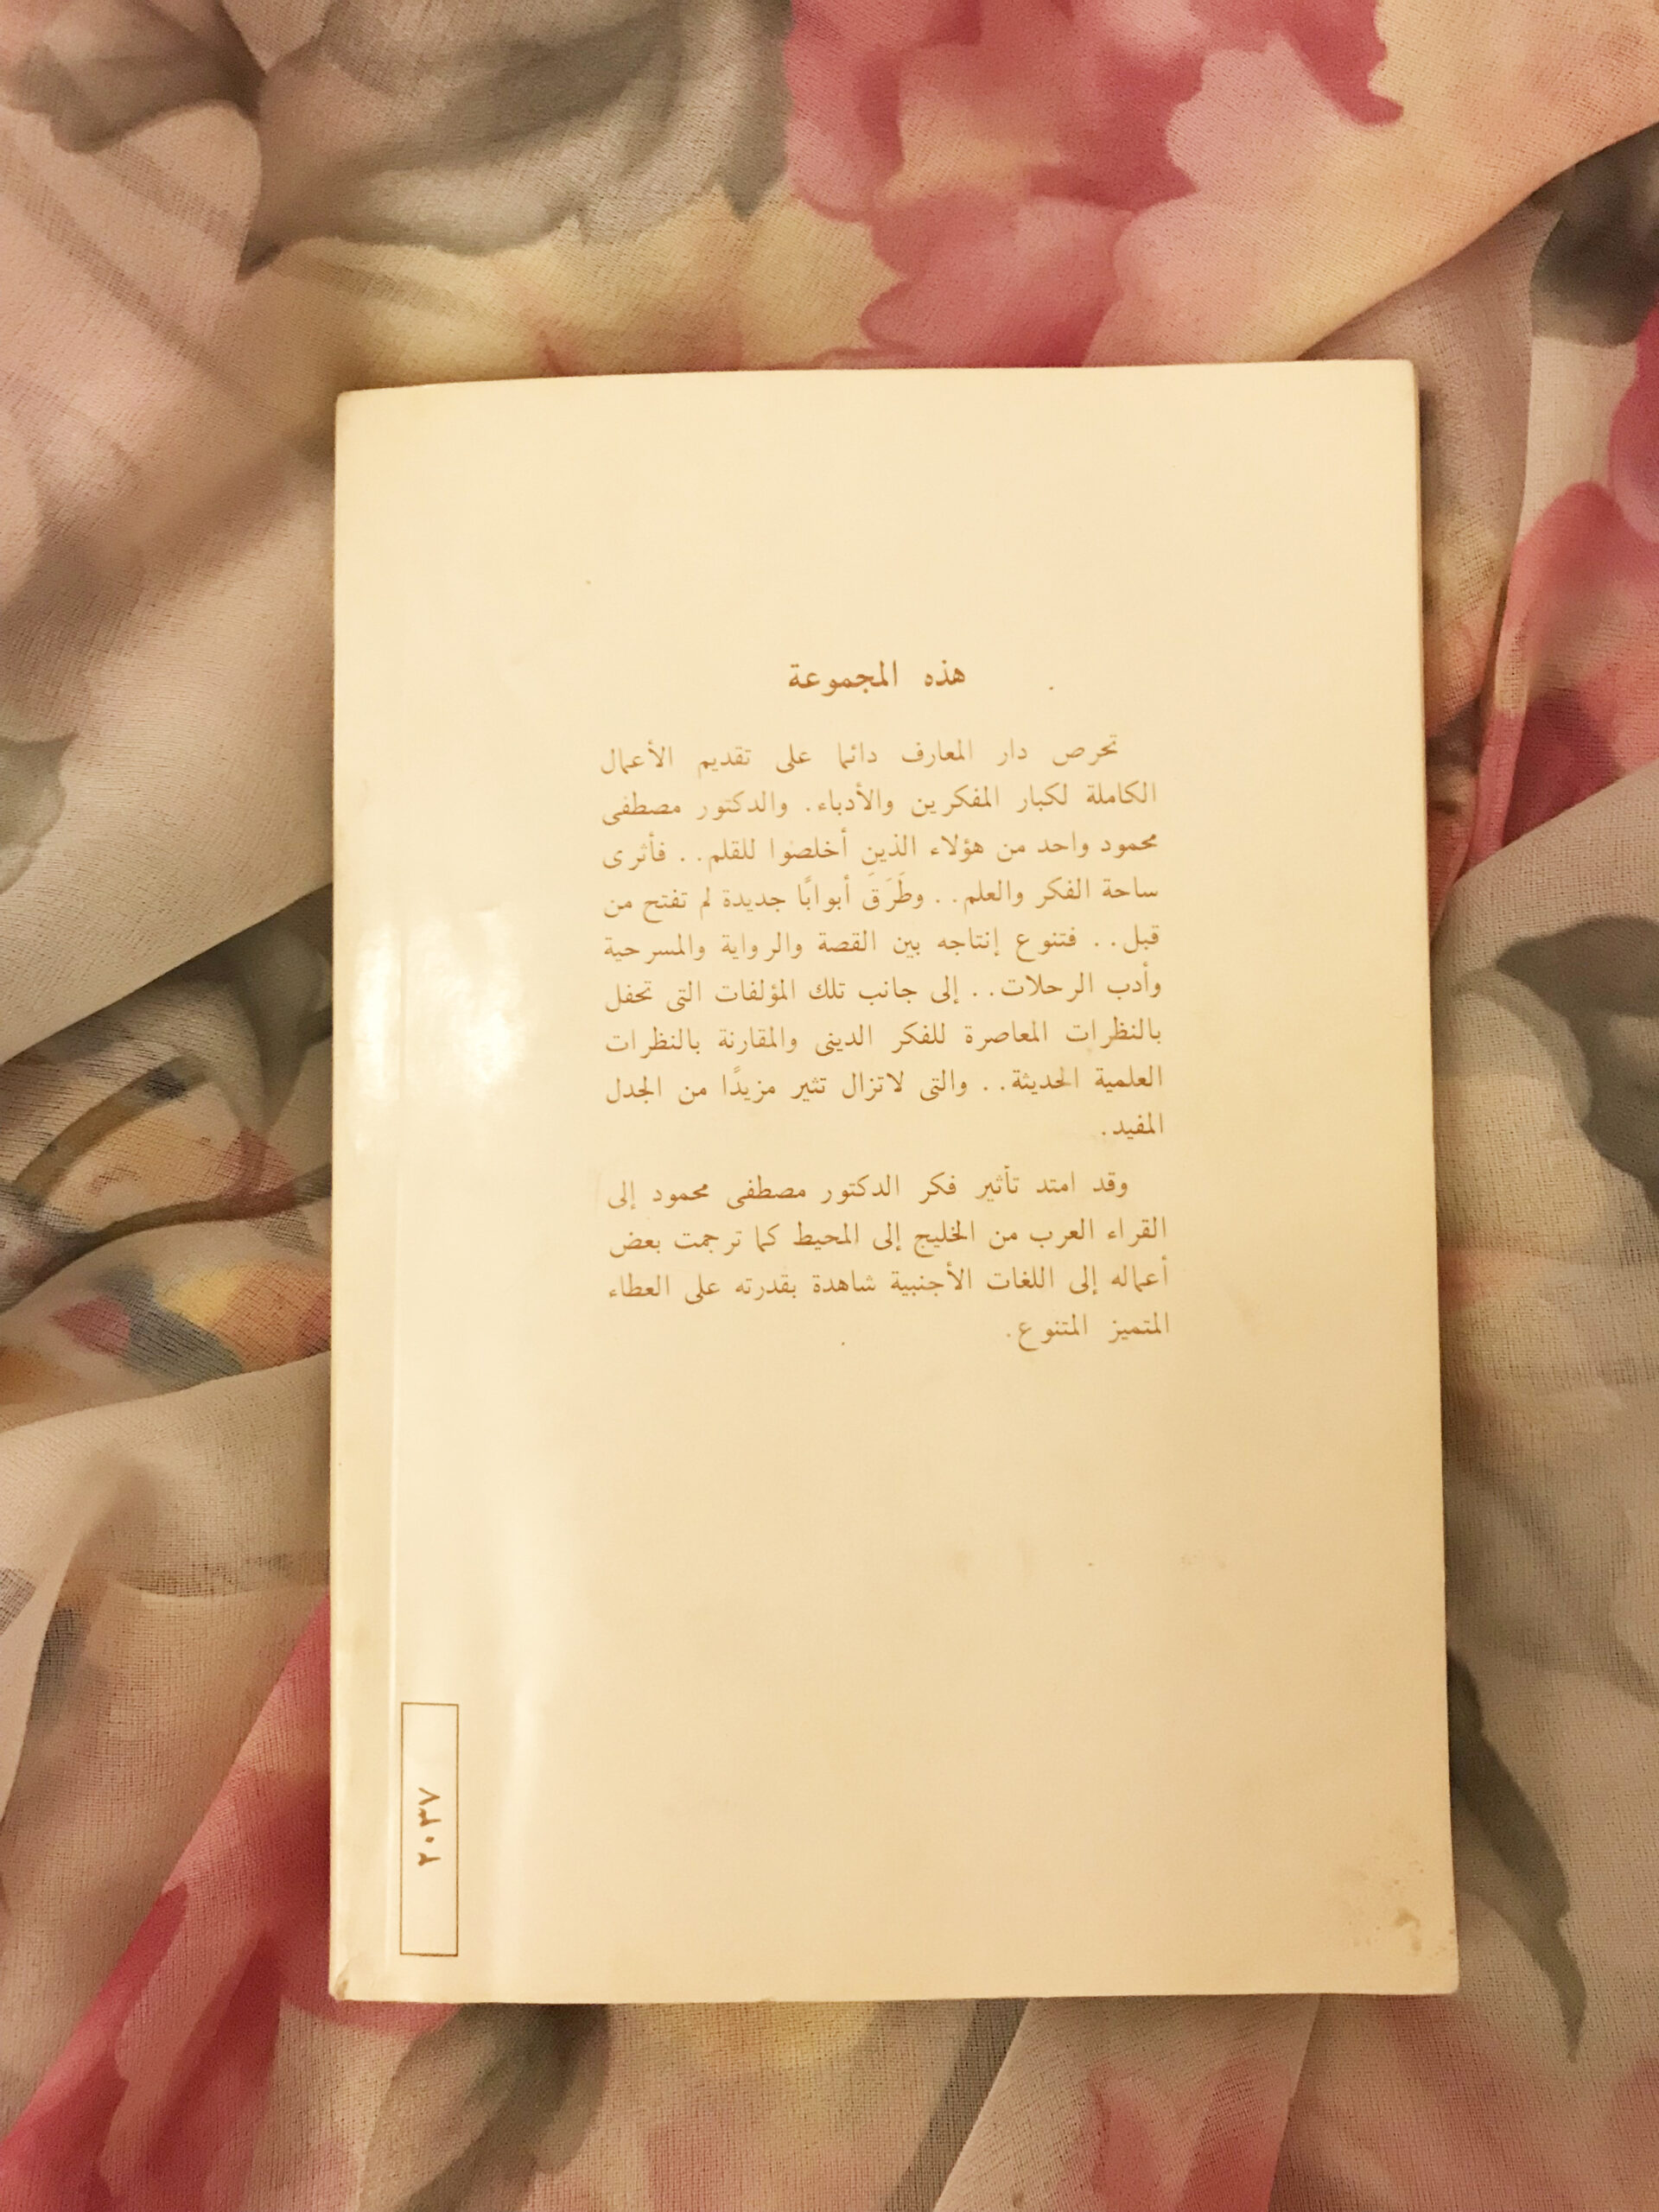 هذه المجموعة
تحرص دار المعارف دائما على تقديم الأعمال
الكاملة لكبار المفكرين والأدباء. والدكتور مصطفى
محمود واحد من هؤلاء الذين أخلصوا للقلم.. فأثرى
ساحة الفكر والعلم.. وطَرَقَ أبوابًا جديدة لم تفتح من
قبل.. فتنوع إنتاجه بين القصة والرواية والمسرحية
وأدب الرحلات.. إلى جانب تلك المؤلفات التى تحفل
بالنظرات المعاصرة للفكر الدينى والمقارنة بالنظرات
العلمية الحديثة.. والتى لاتزال تثير مزيدًا من الجدل
المفيد.
وقد امتد تأثير فكر الدكتور مصطفى محمود إلى
القراء العرب من الخليج إلى المحيط كما ترجمت بعض
أعماله إلى اللغات الأجنبية شاهدة بقدرته على العطاء
المتميز المتنوع.
٢٠٣٧